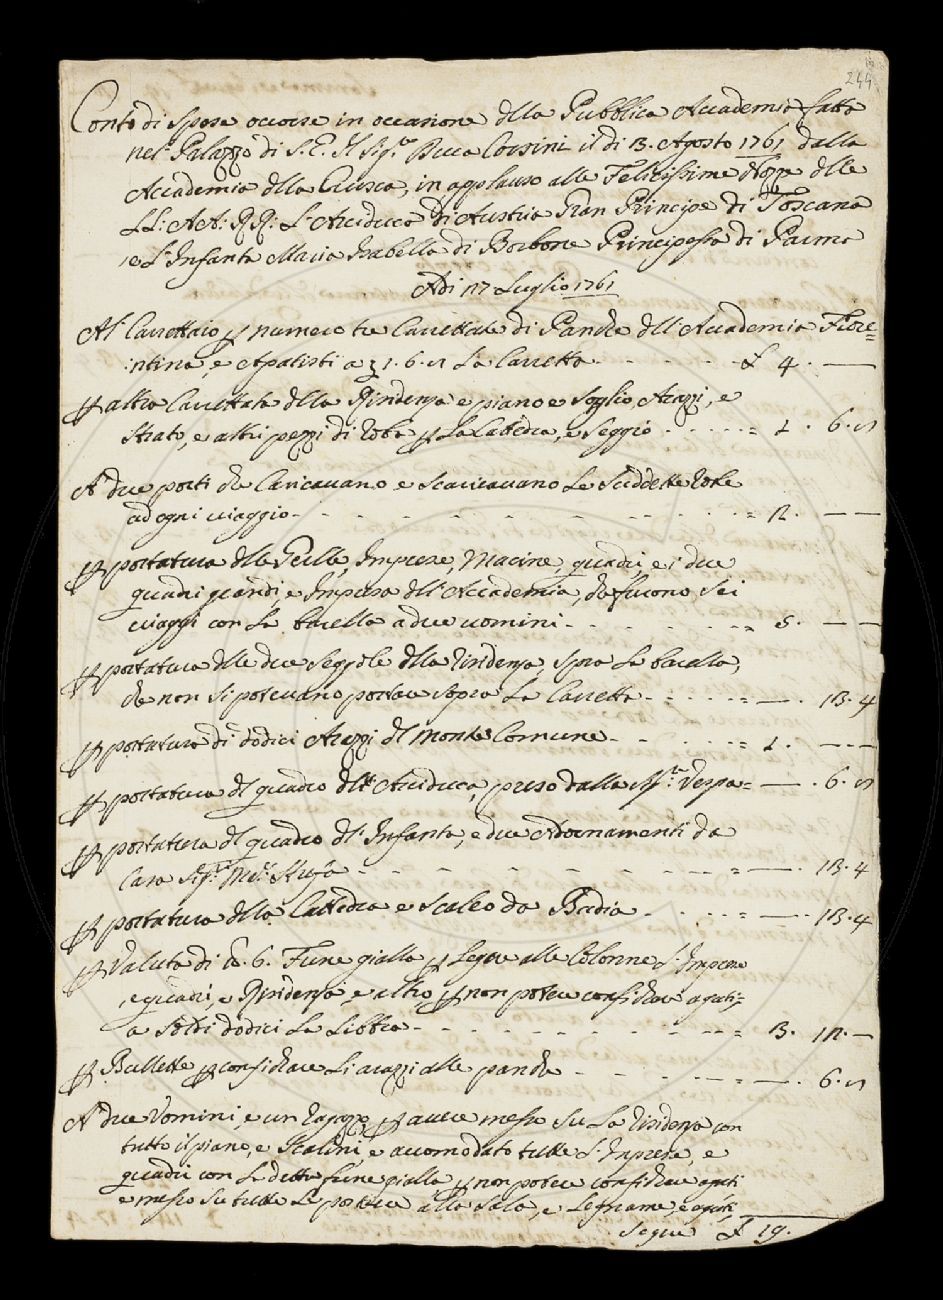 244
Conto di spese occorse in occasione dlla Pubblica Accademia fatta
nel Palazzo di S. E. Il Sig.re Duca Corsini il dì 13. Agosto 1761 dalla
Accademia dlla Crusca, in applauso alle Felicissime Nozze dlle
LL: AA: RR: L'Arciduca d'Austria Gran Principe di Toscana
e L'Infanta Maria Isabella di Borbone Principessa di Parma
Adi 17 Luglio 1761
Al Carrettaio p numero tre Carrettate di Panche dll'Accademia Fiore=
ntina, e Apatisti a 1. 6. 8 La Carretta - - - £ 4. —
p altra Carrettata dlla Residenza e piano e soglio Arazzi, e
Strato, e altri pezzi di roba p La Catedra, e Seggio - - - = 1. 6. 8
A due porti che Caricavano e Scaricavano Le Suddette robe
ad ogni viaggio - - - = 2. —
p portatura dlle Pelle, Imprese, Macine, quadri, e i due
quadri grandi, e Impresa dll'Accademia, che furono Sei
viaggi con La barella a due uomini - - - = 8. —
p portatura dlle due Seggiole dlla residenza, Sopra La barella,
che non si potevano portare sopra La Carretta - - - = —. 13. 4
p portatura di dodici Arazzi dl Monte Comune - - - = 1. —
p portatura dl quadro dll'Arciduca, preso dalla Vespa = —. 6. 8
p portatura dl quadro dl'Infanta, e due Adornamenti da
Casa Sig.r - - - = —. 13. 4
p portatura dlla Cattedra e Scaleo da Badia - - - = —. 13. 4
p Valuta di 6. Fune gialla p Legare alle Colonne L'Imprese
e quadri, e Residenza, e altro, p non potere conficcare aguti,
a Soldi dodici La Libbra - - - = 3. 12. —
p Bullette p conficcare Li arazzi alle panche - - - = —. 6. 8
A due Vomini, e un ragazzo p avere messo Su La residenza con
tutto il piano, e Scalini, e accomodato tutte L'Imprese, e
quadri con La detta fune gialla p non potere conficcare aguti
e messo Su tutte Le portiere alla Sala, e Legname, e aguti,
Segue £ 19.